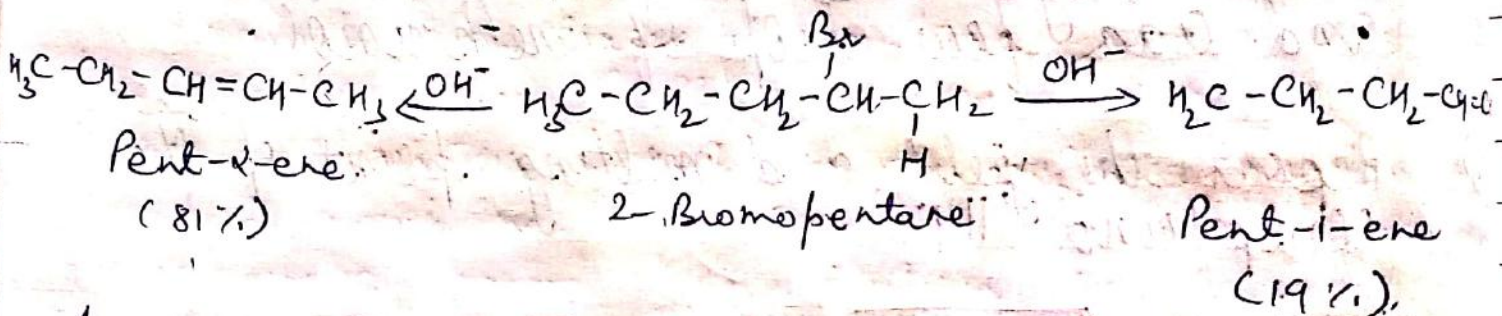 Br
H₃C-CH₂-CH=CH-CH₃ ← OH⁻ H₃C-CH₂-CH₂-CH-CH₂ OH⁻ → H₂C-CH₂-CH₂-CH=C
H
Pent-2-ene 2-Bromopentane Pent-1-ene
(81%) (19%).